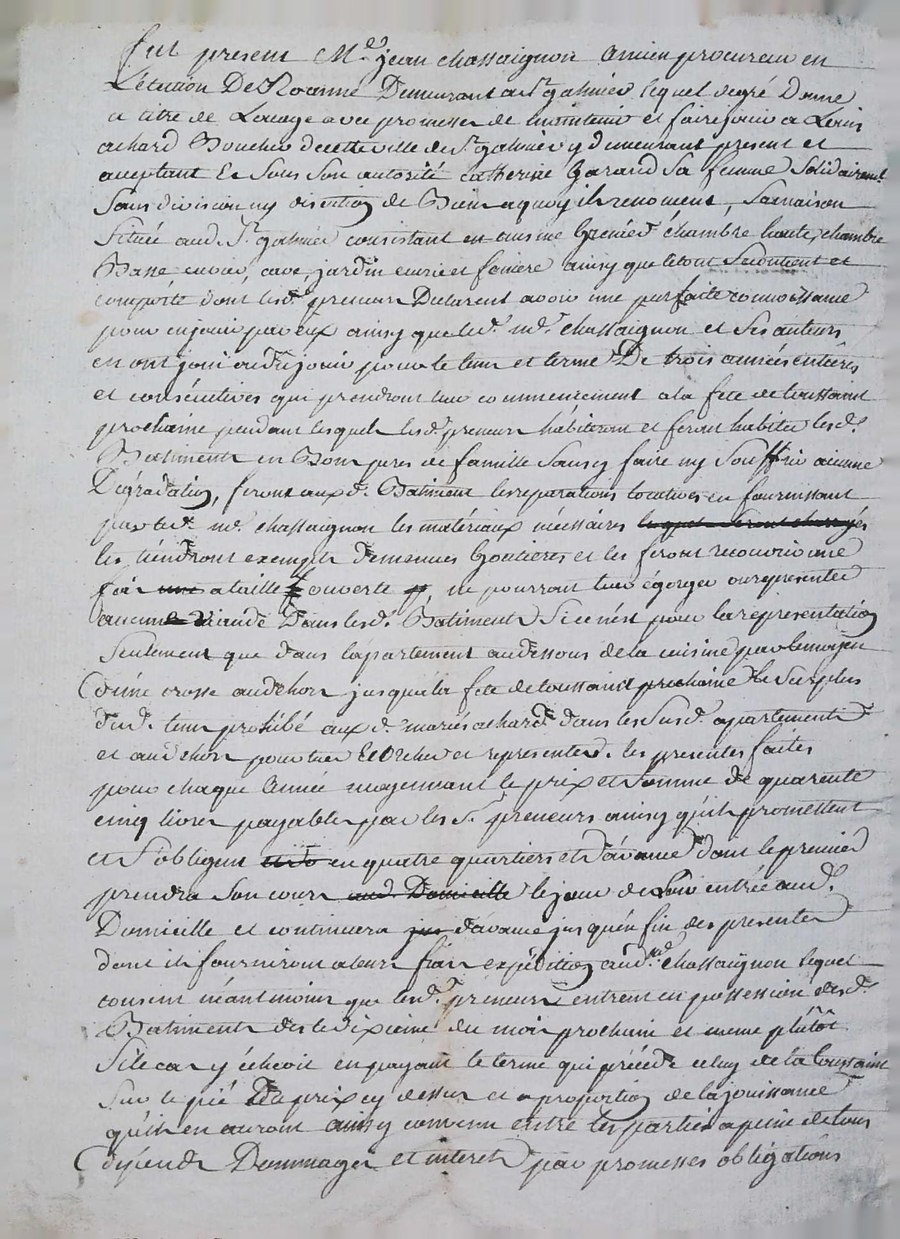 fut present Me. jean chassaignon ancien procureur en
L'élection De Roanne Demeurant a St galmier lequel degré Donne
a titre de Louage avec promesse de maintenir et faire jouir a Louis
achard Boucher decette ville de St galmier y demeurant present et
aceptant Et Sous Son autorité catherine Garand Sa femme Solidairemt.
Sans division ny discution de Bien aquoy ils renoncent, Sa maison
Située aud. St. galmier consistant en cuisine Grenier chambre haute, chambre
Basse cuvier, cave, jardin ecurie et feniere ainsy que letout Secontient et
comporte dont lesd. preneurs Declarent avoir une parfaite connoissance
pour enjouir par eux ainsy que led. me. chassaignon et Ses auteurs
en ont joui ou dû jouir pour le tems et terme De trois années entières
et consécutives qui prendront leur commencement a la fete de toussaint
prochaine pendant lesquels lesd. preneurs habiteront et feront habiter lesd.
Batiments en Bons peres de famille Sans y faire ny Souffrir aucune
Dégradation, feront auxd. Batiment les reparations locatives en fournissant
par led. me. chassaignon les matériaux nécéssaires lequel Seront chargés
les tiendront exempts demenues Goutieres et les feront recouvrir une
fois a taille ouverte, ne pourront tuer égorger ou representer
aucune viande Dans lesd. Batiments Si ce n'est pour la representation
Seulement que dans l'apartement audessous de la cuisine par le moyen
d'une crosse audehors jusqua la fete de toussaint prochaine le Surplus
dud. tems prohibé aux d. mariés achard dans les Susd. apartements
et audehors pour tuer et representer. les presentes faites
pour chaque année moyennant le prix et Somme de quarente
cinq livres payable par les S. preneurs ainsy qu'ils promettent
et S'obligent en quatre quartiers et d'avance dont le premier
prendra Son cours aud. Domicille le jour de Leur entrée aud.
Domicille et continuera d'avance jusqu'en fin des presentes
dont ils fourniront a leurs frais expédition aud. me. chassaignon lequel
consent néantmoins que lesd. preneurs entrent en possession desd.
Batiments des le dixieme du mois prochain et meme plûtôt
Si le cas y échoit en payant le terme qui précéde celuy de la toussaint
Sur le pié De prix cy dessus et a proportion de la jouissance
qu'ils en auront ainsy convenu entre les parties a peine de tous
dépends Dommages et interets par promesses obligations